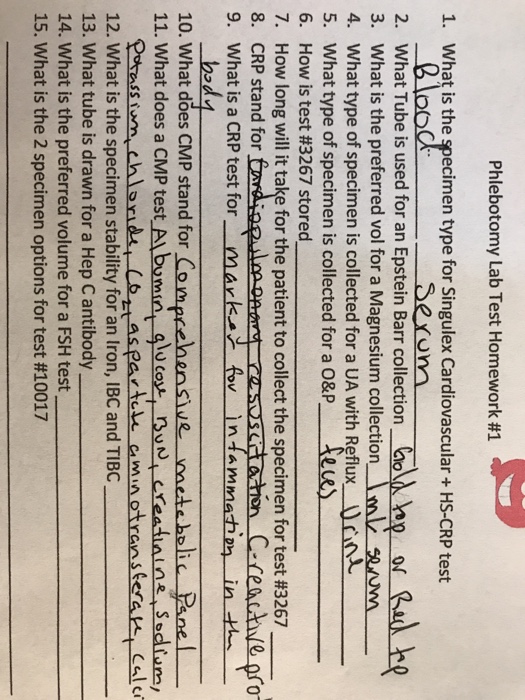 Phlebotomy Lab Test Homework #1
1. What is the specimen type for Singulex Cardiovascular + HS-CRP test
Blood. Serum
2. What Tube is used for an Epstein Barr collection Gold top or Red top
3. What is the preferred vol for a Magnesium collection 1 mL serum
4. What type of specimen is collected for a UA with Reflux Urine
5. What type of specimen is collected for a O&P feces
6. How is test #3267 stored
7. How long will it take for the patient to collect the specimen for test #3267
8. CRP stand for Cardiopulmonary resuscitation C-reactive pro
9. What is a CRP test for marker for inflammation in the
body
10. What does CMP stand for Comprehensive metabolic Panel
11. What does a CMP test Albumin, glucose, BUN, creatinine, sodium,
potassium, chloride, CO2, aspartate aminotransferase, calci
12. What is the specimen stability for an Iron, IBC and TIBC
13. What tube is drawn for a Hep C antibody
14. What is the preferred volume for a FSH test
15. What is the 2 specimen options for test #10017